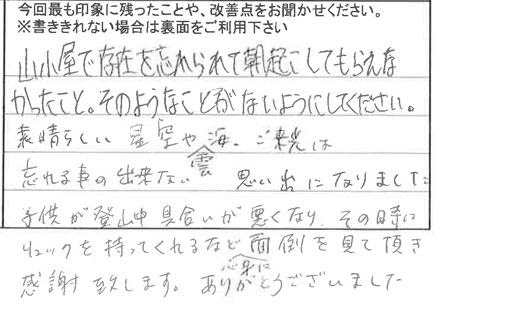 今回最も印象に残ったことや、改善点をお聞かせください。
※書ききれない場合は裏面をご利用下さい
山小屋で存在を忘れられて朝起こしてもらえな
かったこと。そのようなことがないようにしてください。
素晴らしい星空や雲海、ご来光は
忘れる事の出来ない思い出になりました
子供が登山中具合いが悪くなり、その時に
リュックを持ってくれるなど親身に面倒を見て頂き
感謝致します。ありがとうございました